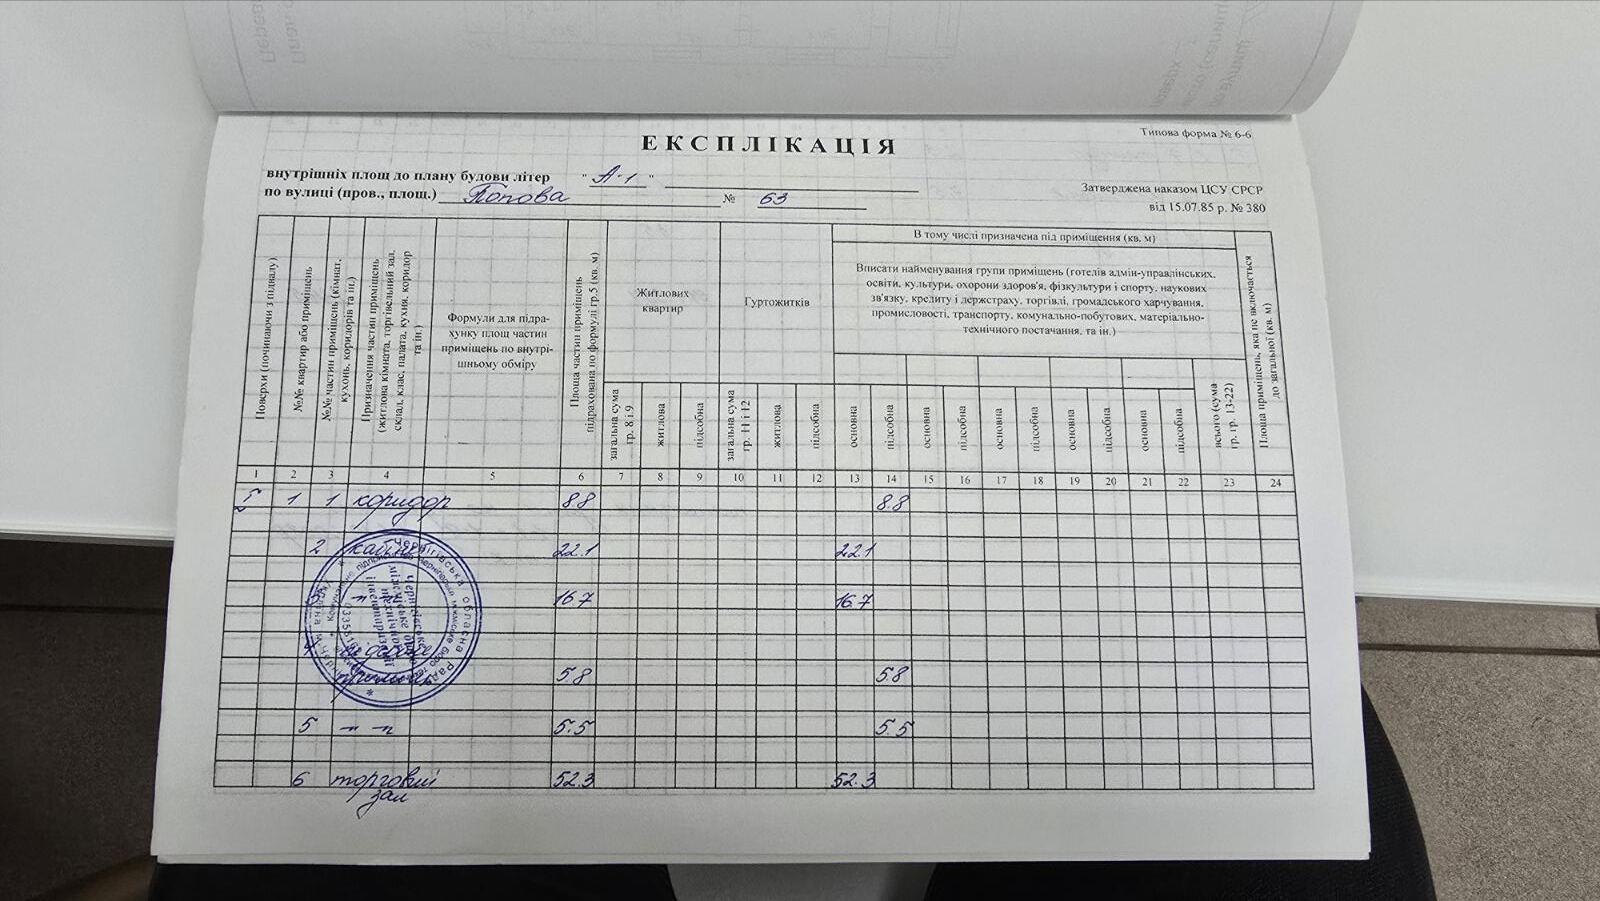 ЕКСПЛІКАЦІЯ
Типова форма № 6-6
внутрішніх площ до плану будови літер " А-1 "
по вулиці (пров., площ.) Попова № 63
Затверджена наказом ЦСУ СРСР
від 15.07.85 р. № 380
Поверхи (починаючи з підвалу)
№№ квартир або приміщень
№№ частин приміщень (кімнат, кухонь, коридорів та ін.)
Призначення частин приміщень (житлова кімната, торгівельний зал, склад, клас, палата, кухня, коридор та ін.)
Формули для підра-
хунку площ частин
приміщень по внутрі-
шньому обміру
Площа частин приміщень підрахована по формулі гр.5 (кв. м)
Житлових
квартир
загальна сума гр. 8 і 9
житлова
підсобна
Гуртожитків
загальна сума гр. 11 і 12
житлова
підсобна
В тому числі призначена під приміщення (кв. м)
Вписати найменування групи приміщень (готелів адмін-управлінських,
освіти, культури, охорони здоров'я, фізкультури і спорту, наукових
зв'язку, кредиту і держстраху, торгівлі, громадського харчування,
промисловості, транспорту, комунально-побутових, матеріально-
технічного постачання, та ін.)
основна
підсобна
основна
підсобна
основна
підсобна
основна
підсобна
основна
підсобна
всього (сума гр. гр. 13-22)
Площа приміщень, яка не включається до загальної (кв. м)
1 2 3 4 5 6 7 8 9 10 11 12 13 14 15 16 17 18 19 20 21 22 23 24
I 1 1 коридор 8.8 8.8
2 кабінет 22.1 22.1
16.7 16.7
5.8 5.8
5 –"– –"– 5.5 5.5
6 торговий 52.3 52.3
зал
Чернігівська обласна рада
Чернігівське
міжміське бюро
технічної
інвентаризації